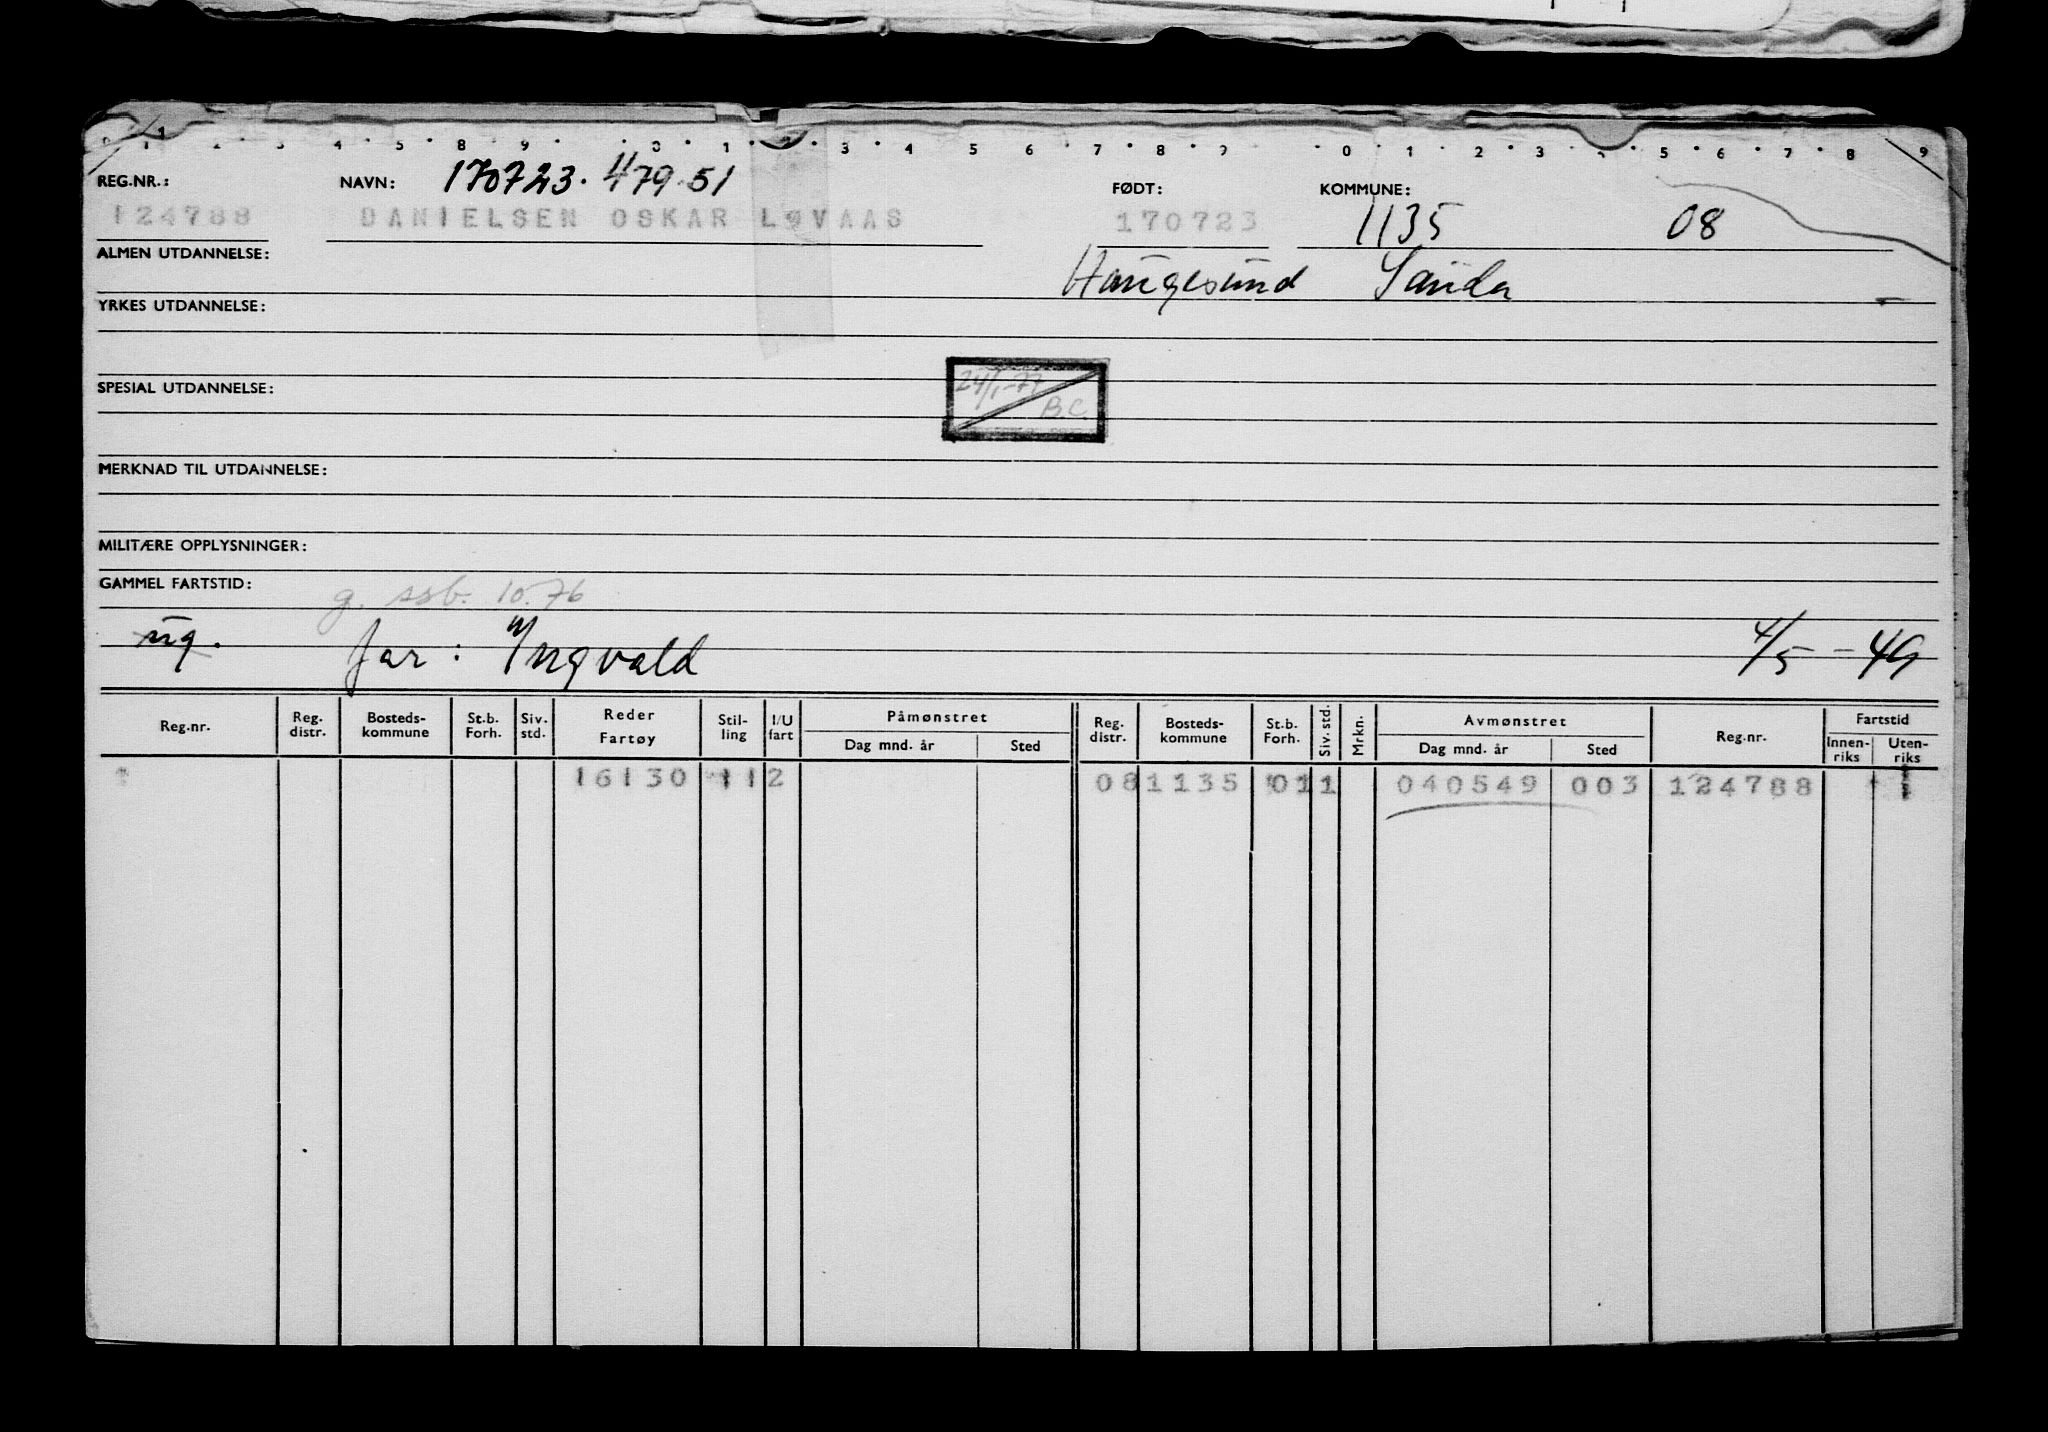 REG.NR.: NAVN: 170723. 479.51 FØDT: KOMMUNE:
124788 DANIELSEN OSKAR LØVAAS 170723 1135 08
ALMEN UTDANNELSE: Haugesund Sauda
YRKES UTDANNELSE:
SPESIAL UTDANNELSE: 24/1-77 B.C.
MERKNAD TIL UTDANNELSE:
MILITÆRE OPPLYSNINGER:
GAMMEL FARTSTID: g. ssb. 10.76
ug. far: Yngvald 4/5-49
Reg.nr. Reg. distr. Bosteds-kommune St.b. Forh. Siv. std. Reder Fartøy Stil-ling I/U fart Påmønstret Dag mnd. år Sted Reg. distr. Bosteds-kommune St.b. Forh. Siv. std. Mrkn. Avmønstret Dag mnd. år Sted Reg.nr. Fartstid Innen-riks Uten-riks
16130 112 081135 011 040549 003 124788 1